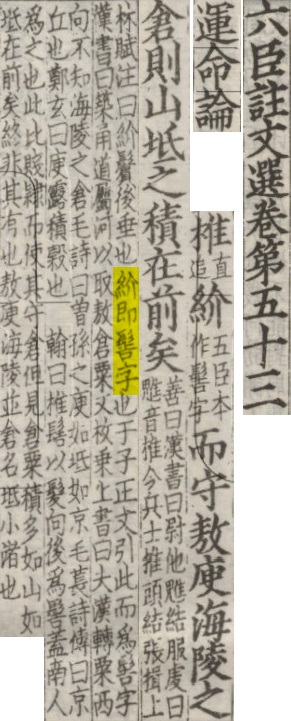 六臣註文選卷第五十三
運命論
椎直追紒五臣本作髻字而守敖庾海陵之
倉則山坻之積在前矣善曰漢書曰尉他魋結服虔曰
魋音椎今兵士椎頭結張揖上
林賦注曰紒鬢後垂也紒即髻字也于子正文引此而為髻字
漢書曰築甬道屬河以取敖倉粟又枚乗上書曰大漢轉粟西
向不知海陵之倉毛詩曰曽孫之庾如坻如京毛萇詩傳曰京
丘也鄭玄曰庾露積穀也 翰曰椎髻以髮向後為髻蓋南人
為之也此比隸而使其守倉但見倉粟積多如山如
坻在前矣終非其有也敖庾海陵並倉名坻小渚也